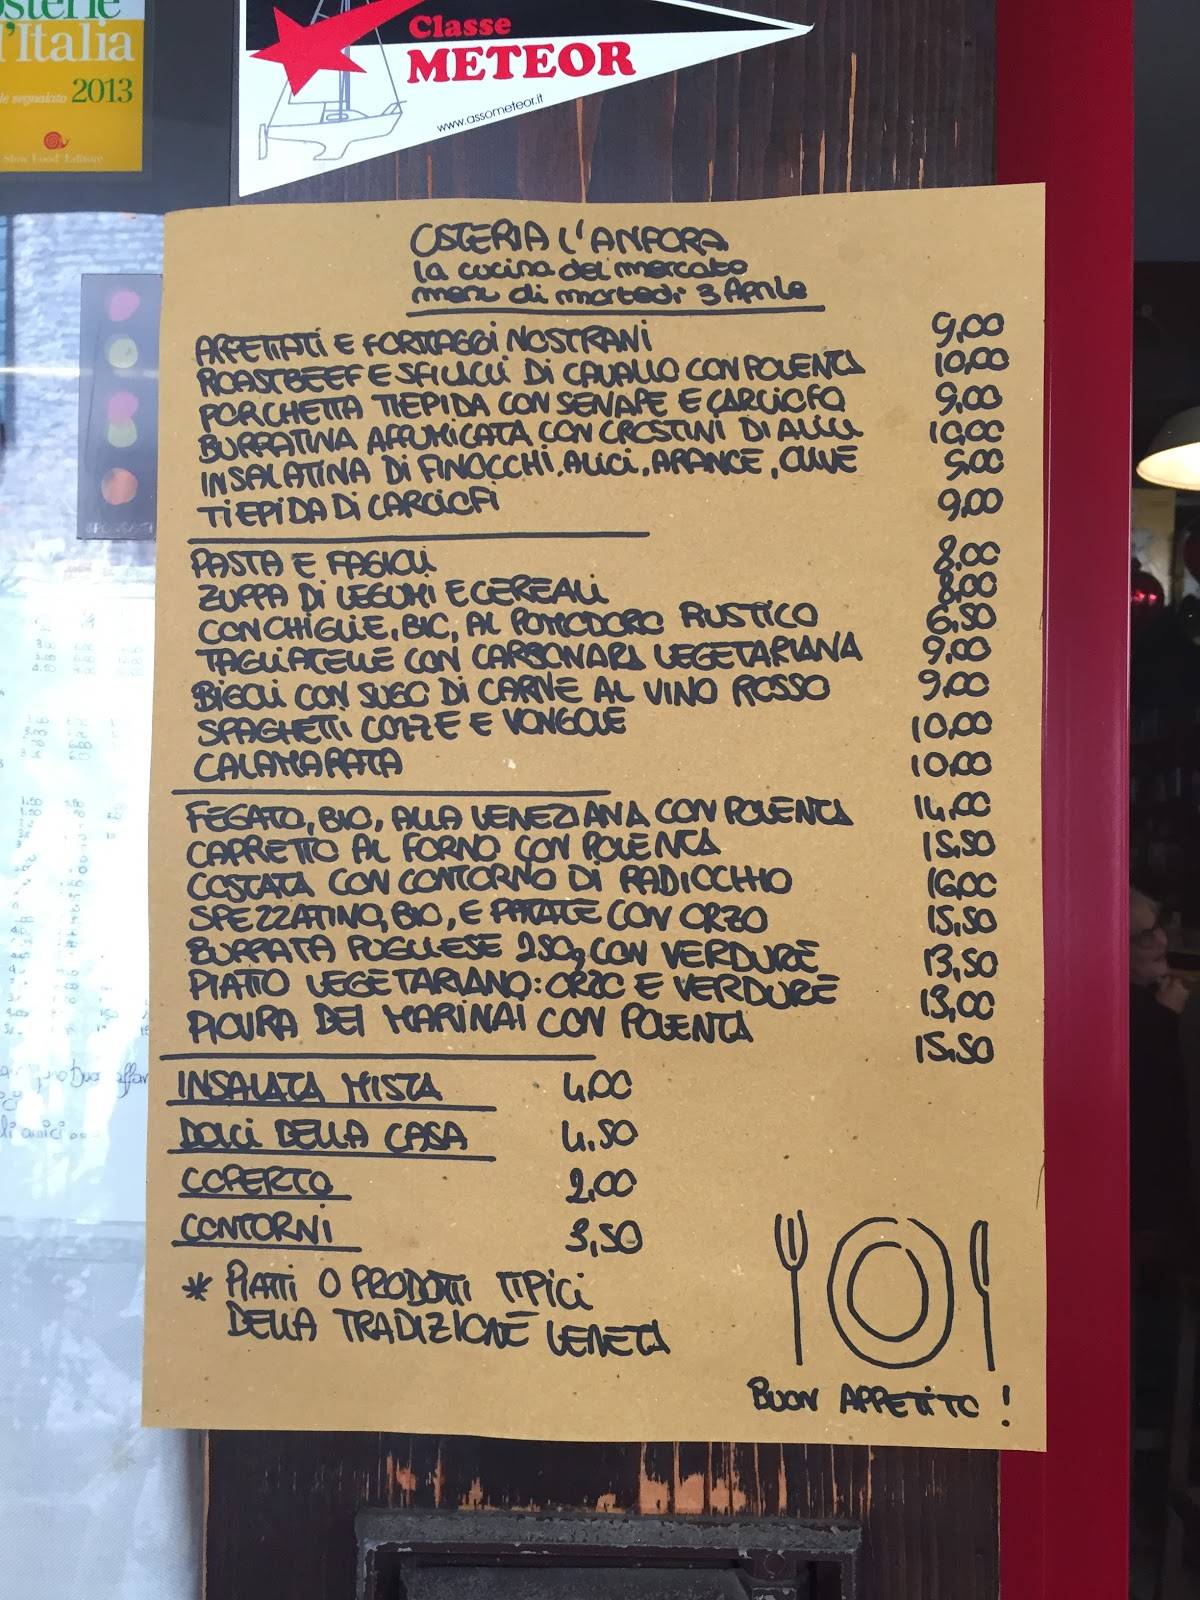 Osterie
d'Italia
2013
Slow Food Editore
Classe
METEOR
www.assometeor.it
OSTERIA L'ANFORA
la cucina del mercato
menu di martedì 3 Aprile
AFFETTATI E FORMAGGI NOSTRANI 9,00
ROASTBEEF E SFILACCI DI CAVALLO CON POLENTA 10,00
PORCHETTA TIEPIDA CON SENAPE E CARCIOFO 9,00
BURRATINA AFFUMICATA CON CROSTINI DI ALICI 10,00
INSALATINA DI FINOCCHI, ALICI, ARANCE, OLIVE 9,00
TIEPIDA DI CARCIOFI 9,00
PASTA E FAGIOLI 8,00
ZUPPA DI LEGUMI E CEREALI 8,00
CONCHIGLIE, BIO, AL POMODORO RUSTICO 6,50
TAGLIATELLE CON CARBONARA VEGETARIANA 9,00
BIGOLI CON SUGO DI CARNE AL VINO ROSSO 9,00
SPAGHETTI COZZE E VONGOLE 10,00
CALAMARATA 10,00
FEGATO, BIO, ALLA VENEZIANA CON POLENTA 14,00
CAPRETTO AL FORNO CON POLENTA 15,50
COSTATA CON CONTORNO DI RADICCHIO 16,00
SPEZZATINO, BIO, E PATATE CON ORZO 15,50
BURRATA PUGLIESE 250g CON VERDURE 13,50
PIATTO VEGETARIANO: ORZO E VERDURE 13,00
PIOVRA DEI MARINAI CON POLENTA 15,50
INSALATA MISTA 4,00
DOLCI DELLA CASA 4,50
COPERTO 2,00
CONTORNI 3,50
* PIATTI O PRODOTTI TIPICI
DELLA TRADIZIONE VENETA
BUON APPETITO !